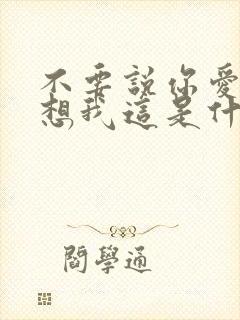 不要說你愛
想我這是什
閻學通